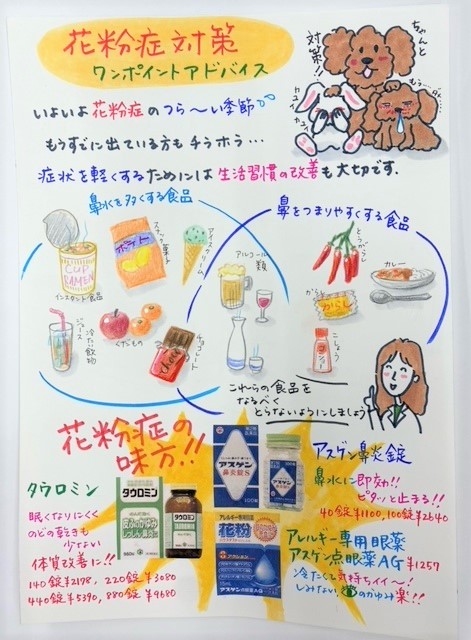 花粉症対策
ワンポイントアドバイス
ちゃんと
対策!!
もう…ダメ…
カユイ
カユイ
いよいよ花粉症のつら〜い季節
もうすでに出ている方もチラホラ…
症状を軽くするためには生活習慣の改善も大切です.
鼻水を多くする食品
鼻をつまりやすくする食品
スナック菓子
アイスクリーム
ポテト
CUP
RAMEN
インスタント食品
アルコール
類
とうがらし
カレー
からし
こしょう
ジュース
冷たい飲物
くだもの
チョコレート
これらの食品を
なるべく
とらないようにしましょう
花粉症の
味方!!
タウロミン
眠くなりにくく
のどの乾きも
少ない
体質改善に!!
140錠¥2198, 220錠¥3080
440錠¥5390, 880錠¥9680
タウロミン
皮ふのかゆみ
しっしん・鼻炎に
タウロミン
アスゲン
鼻炎錠S
アスゲン
アレルギー専用眼薬
花粉
アスゲン
点眼薬AG
アスゲン鼻炎錠
鼻水に即効!!
ピタッと止まる!!
40錠¥1100, 100錠¥2640
アレルギー専用眼薬
アスゲン点眼薬AG ¥1257
冷たくて気持ちイイ〜!
しみない
のかゆみ楽!!